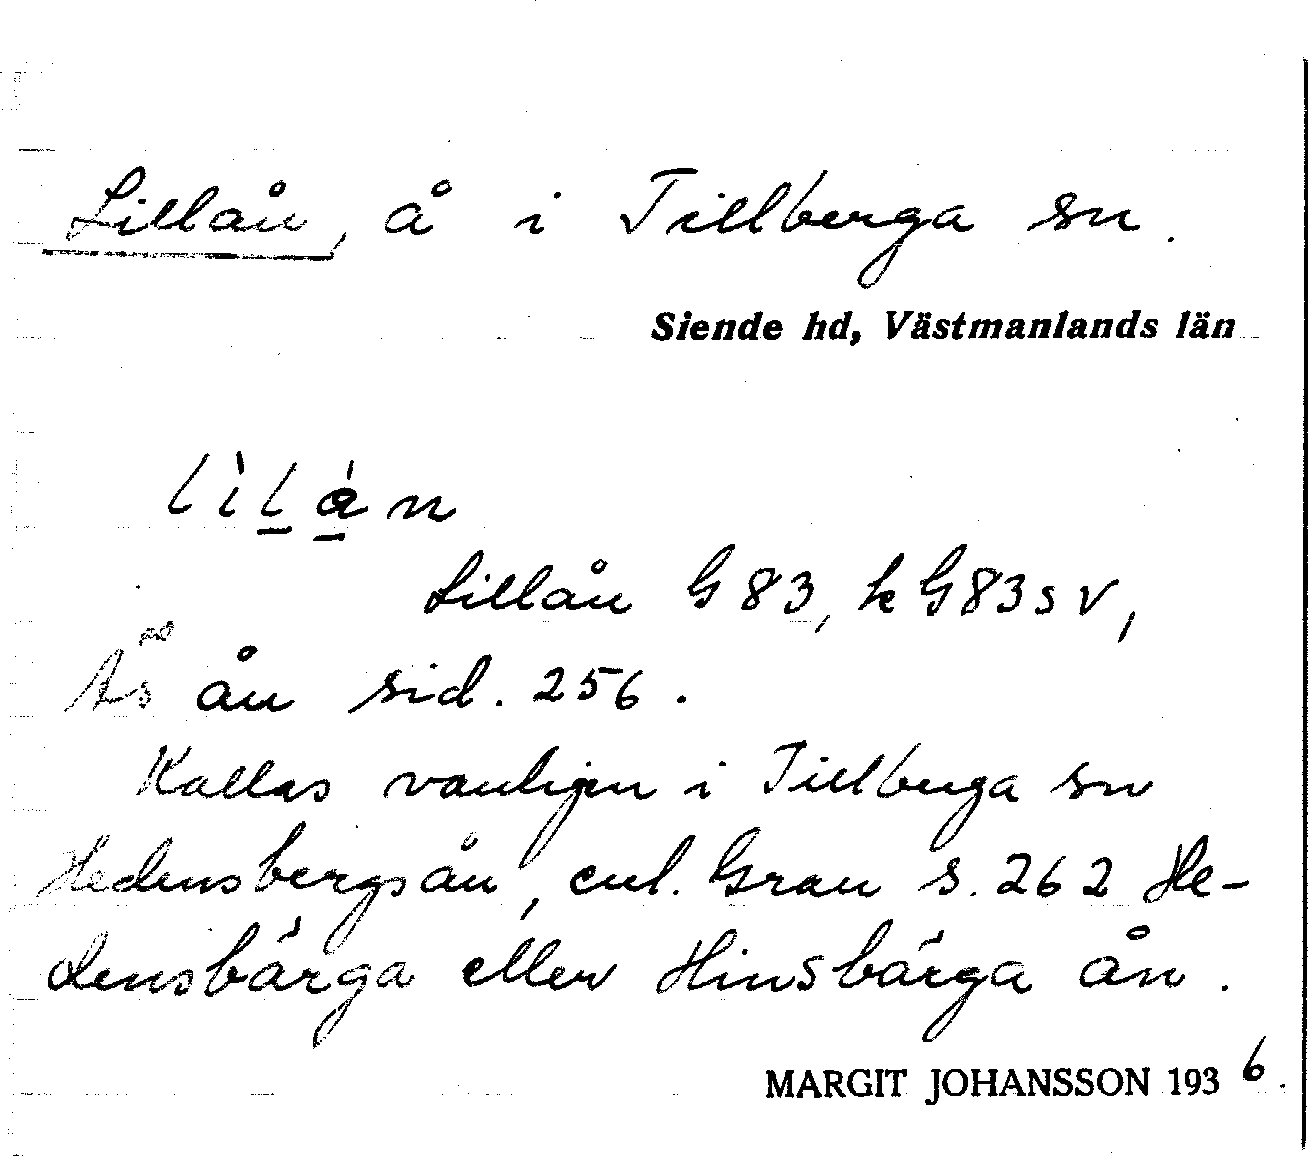 Lillån, å i Tillberga sn.
Siende hd, Västmanlands län
Lillån G 83, k G83sv,
Ås ån sid. 256.
Kallas vanligen i Tillberga sn
Hedensbergsån, enl. Grau s. 262 He-
densbärga eller Hinsbärga ån.
MARGIT JOHANSSON 1936.